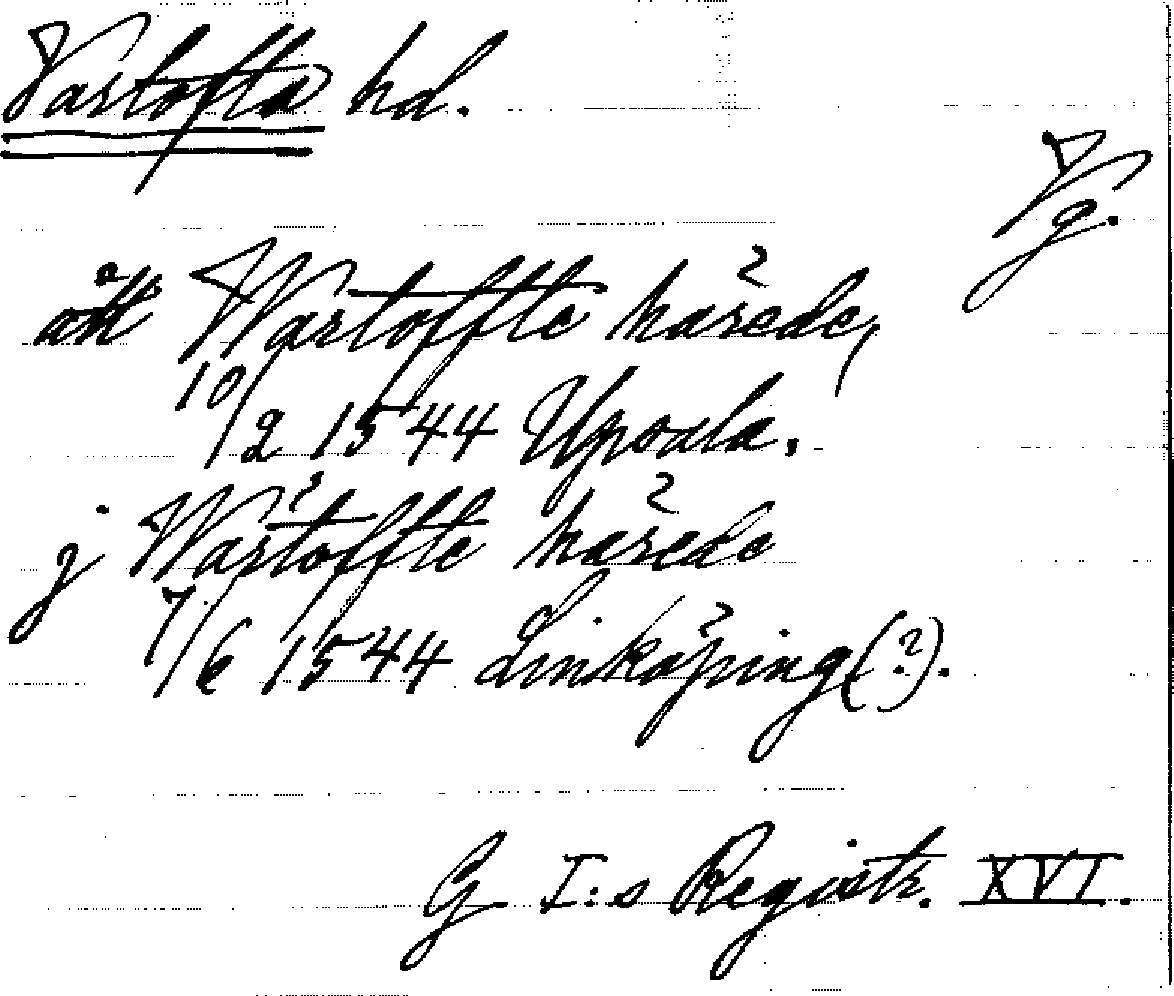 Vartofta hd.
Vg.
att Wartoffte härede,
10/2 1544 Upsala.
j Wärtoffte härede
7/6 1544 Linköping (?).
G I:s Registr. XVI.